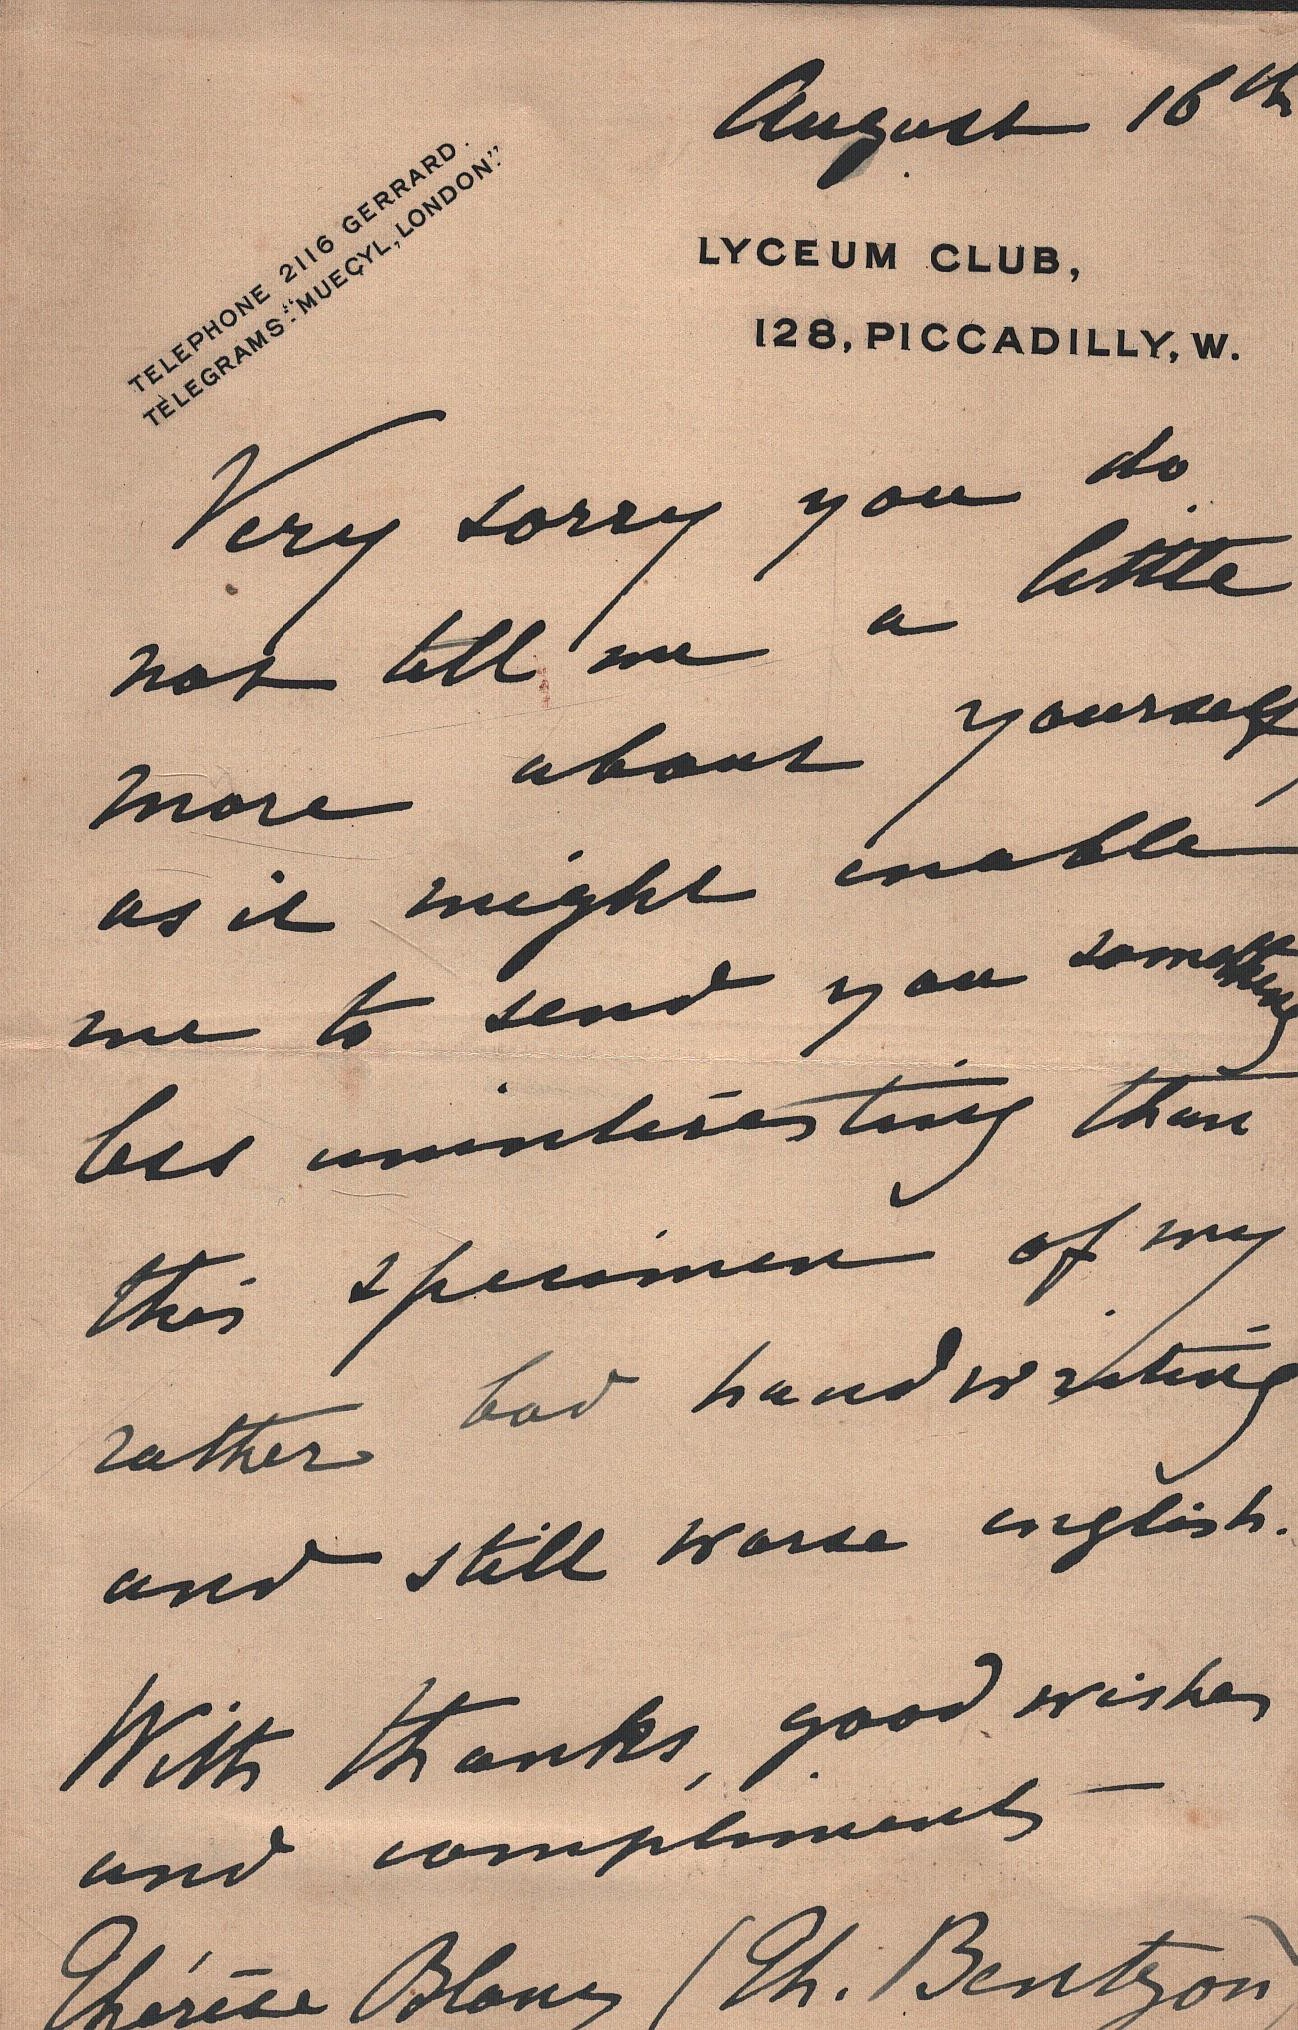 August 16th
TELEPHONE 2116 GERRARD.
TELEGRAMS: "MUECYL, LONDON."
LYCEUM CLUB,
128, PICCADILLY, W.
Very sorry you do
not tell me a little
more about yourself,
as it might enable
me to send you something
less uninteresting than
this specimen of my
rather bad handwriting
and still worse english.
With thanks, good wishes
and compliments
Thérèse Blanc (Th. Bentzon)